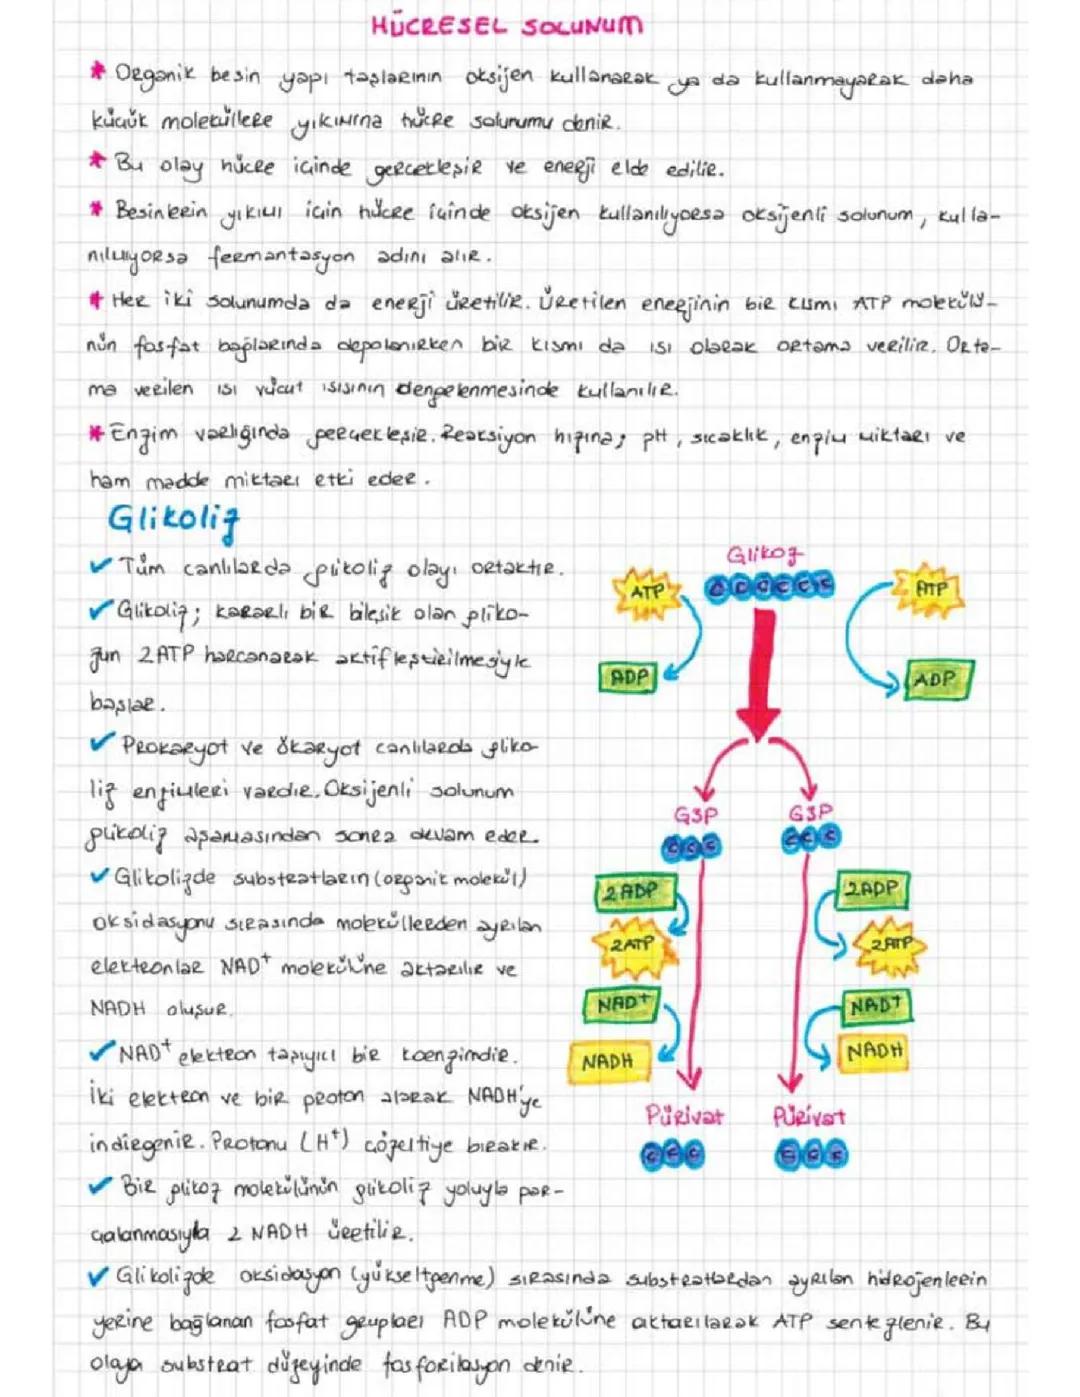 HÜCRESEL SOLUNUM
* Organik besin yapı taşlarının oksijen kullanarak ya da kullanmayarak daha
küçük moleküllere yıkımına hücre solunumu denir.
* Bu olay hücre içinde gerçekleşir ve enerji elde edilir.
* Besinlerin yıkımı için hücre içinde oksijen kullanılıyorsa oksijenli solunum, kulla-
nılmıyorsa fermantasyon adını alır.
* Her iki solunumda da enerji üretilir. Üretilen enerjinin bir kısmı ATP molekülü-
nün fosfat bağlarında depolanırken bir kısmı da ısı olarak ortama verilir. Orta-
ma verilen ısı vücut ısısının dengelenmesinde kullanılır.
* Enzim varlığında gerçekleşir. Reaksiyon hızına; pH, sıcaklık, enzim miktarı ve
ham madde miktarı etki eder.
Glikoliz
✓ Tüm canlılarda glikoliz olayı ortaktır.
✓ Glikoliz; kararlı bir bileşik olan gliko-
zun 2 ATP harcanarak aktifleştirilmesiyle
başlar.
✓ Prokaryot ve ökaryot canlılarda gliko-
liz enzimleri vardır. Oksijenli solunum
glikoliz aşamasından sonra devam eder.
✓ Glikolizde substratların (organik molekül)
oksidasyonu sırasında moleküllerden ayrılan
elektronlar NAD+ molekülüne aktarılır ve
NADH oluşur.
✓ NAD+ elektron taşıyıcı bir koenzimdir.
İki elektron ve bir proton alarak NADH'ye
indirgenir. Protonu (H+) çözeltiye bırakır.
✓ Bir glikoz molekülünün glikoliz yoluyla par-
çalanmasıyla 2 NADH üretilir.
✓ Glikolizde oksidasyon (yükseltgenme) sırasında substratlardan ayrılan hidrojenlerin
yerine bağlanan fosfat grupları ADP molekülüne aktarılarak ATP sentezlenir. Bu
olaya substrat düzeyinde fosforilasyon denir.
Glikoz
ATP C C C C C C ATP
ADP ADP
G3P G3P
C C C C C C
2 ADP 2ADP
2ATP 2ATP
NAD+ NAD+
NADH NADH
Pürivat Pürivat
C C C C C C